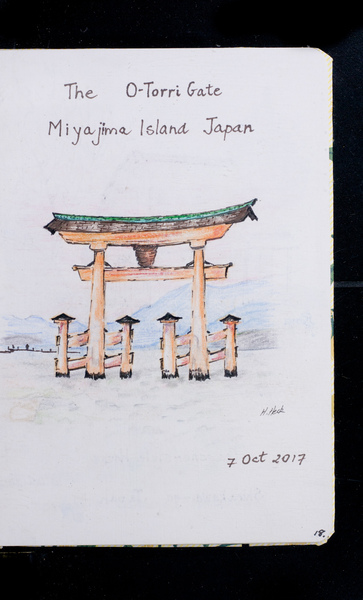 The O-Torri Gate
Miyajima Island Japan
7 Oct 2017
18.